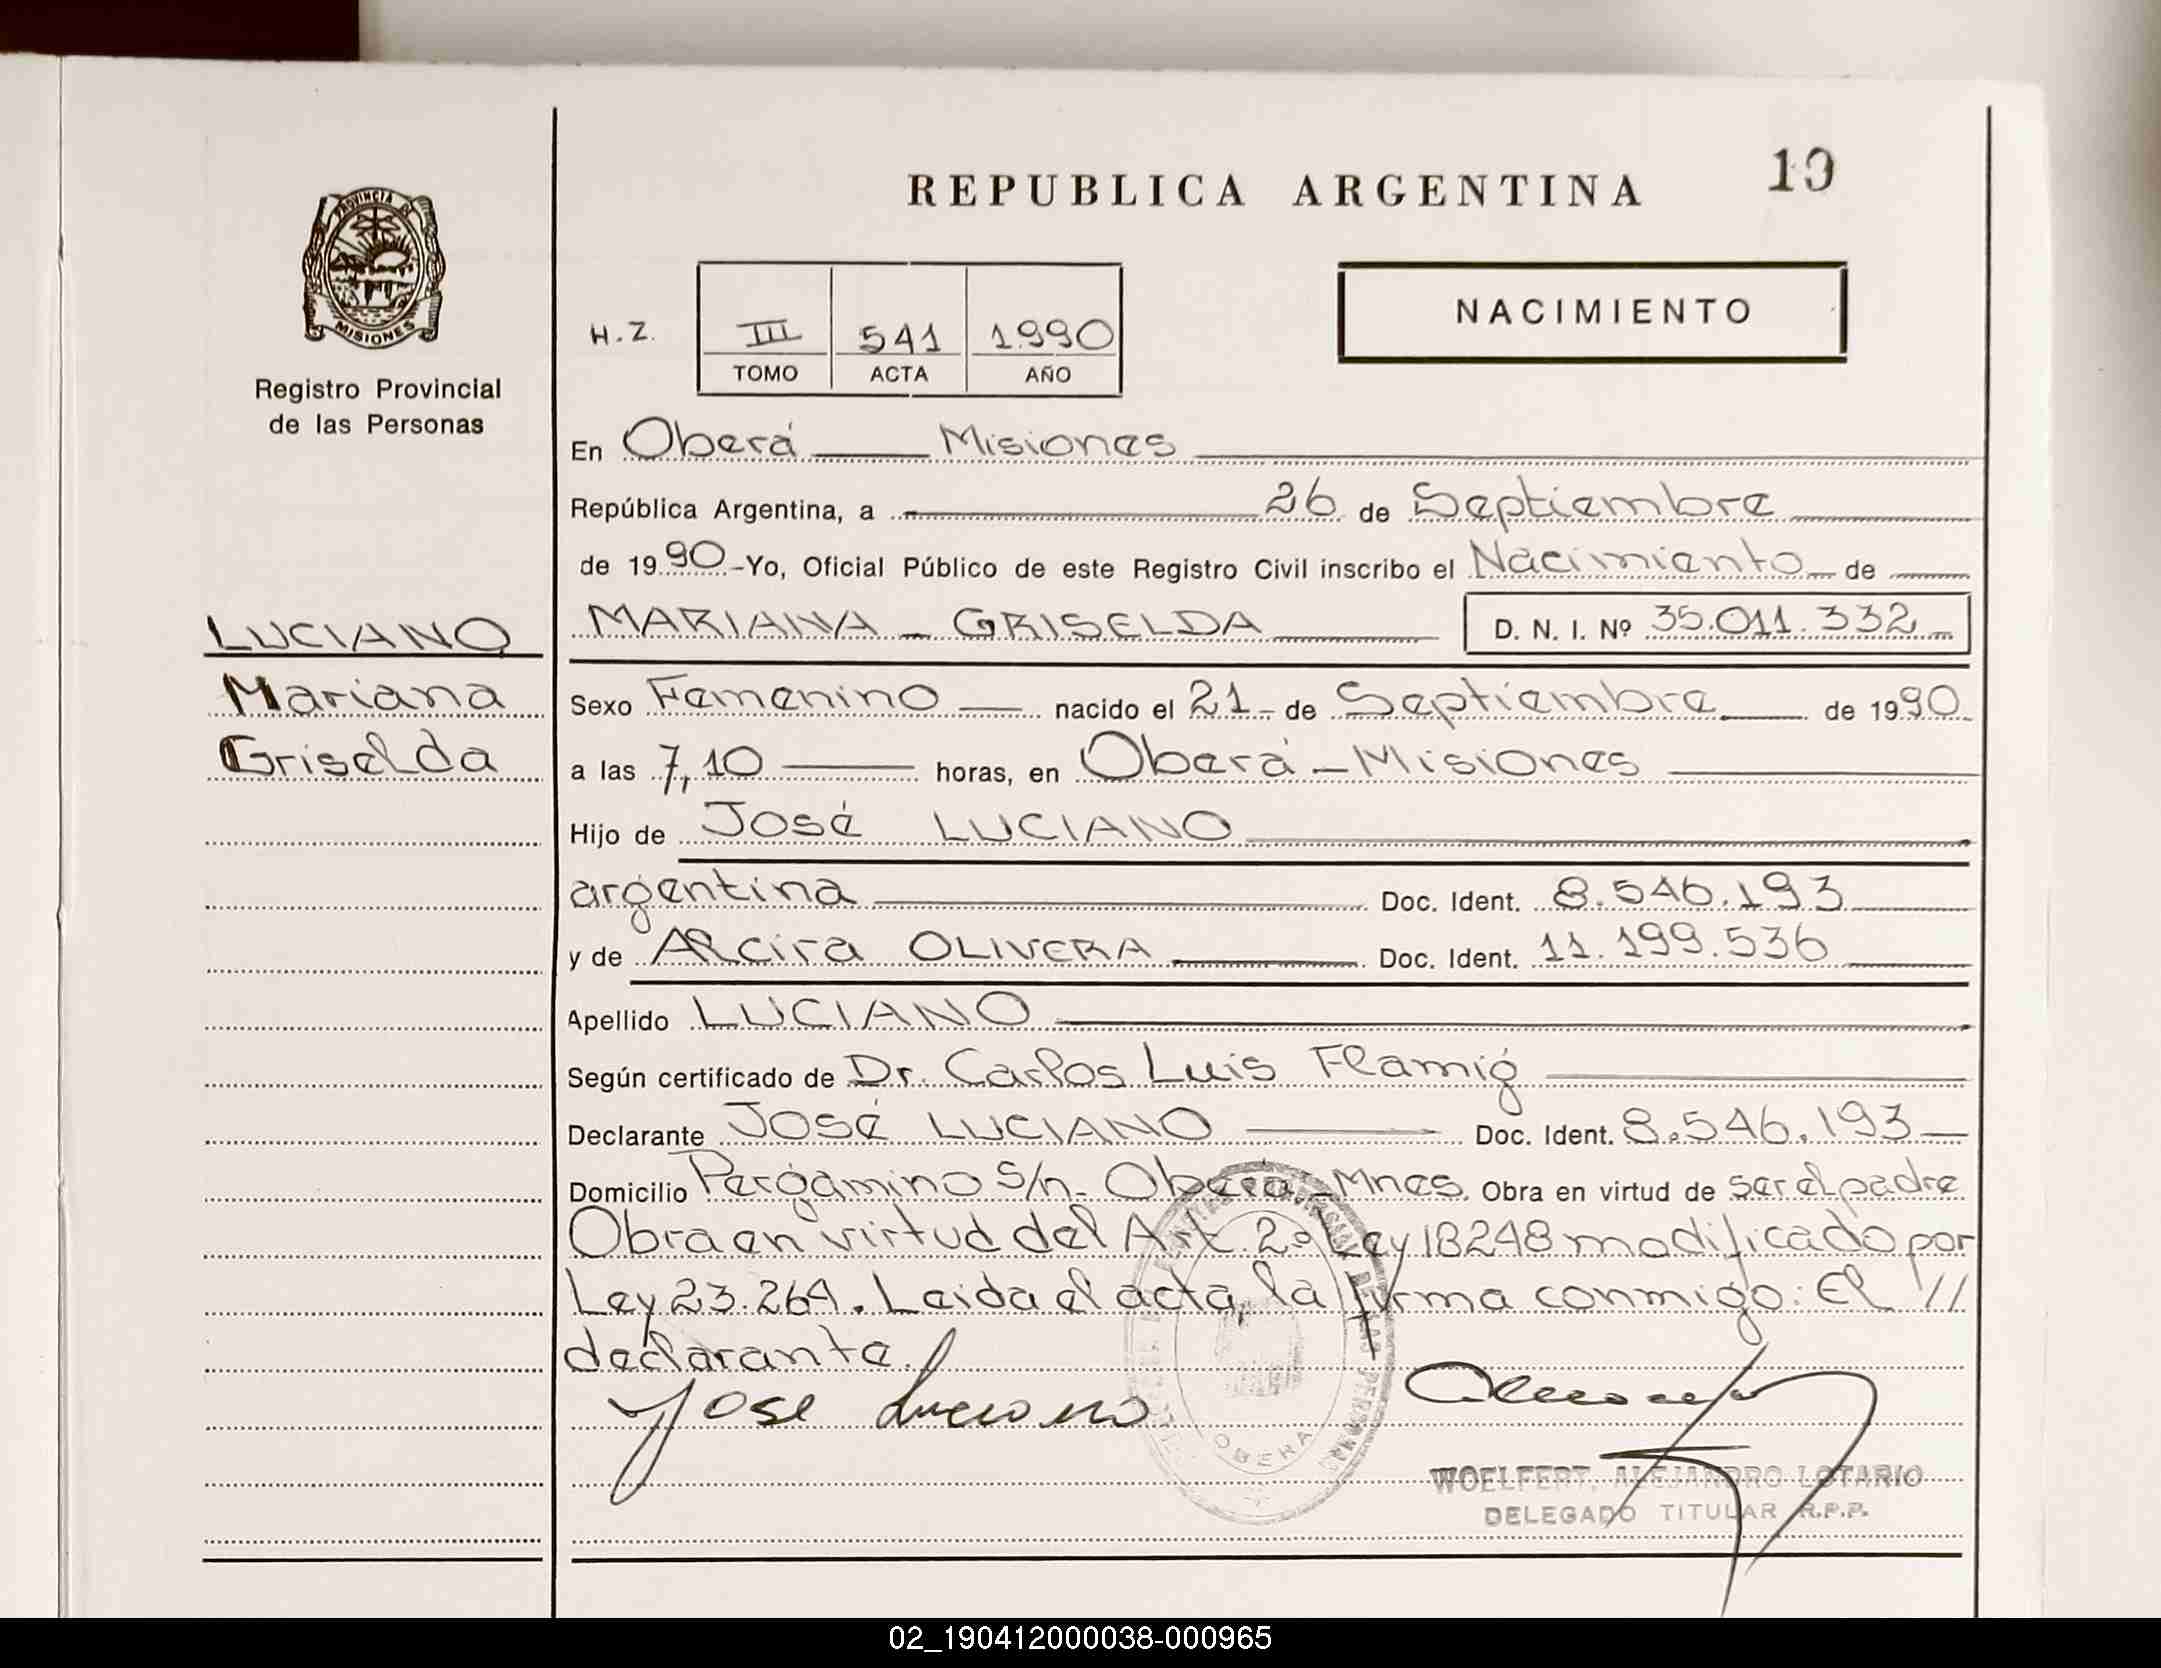 REPUBLICA ARGENTINA
19
PROVINCIA DE
MISIONES
Registro Provincial
de las Personas
NACIMIENTO
H.Z.
III 541 1990
TOMO ACTA AÑO
En Oberá Misiones
República Argentina, a 26 de Septiembre
de 1990 -Yo, Oficial Público de este Registro Civil inscribo el Nacimiento de
MARIANA - GRISELDA D. N. I. Nº 35.011.332
LUCIANO
Mariana
Griselda
Sexo Femenino nacido el 21 - de Septiembre de 1990
a las 7,10 horas, en Oberá - Misiones
Hijo de José LUCIANO
argentina Doc. Ident. 8.546.193
y de Alcira OLIVERA Doc. Ident. 11.199.536
Apellido LUCIANO
Según certificado de Dr. Carlos Luis Flamig
Declarante José LUCIANO Doc. Ident. 8.546.193
Domicilio Pergamino s/n. Oberá - Mnes. Obra en virtud de ser el padre
Obra en virtud del Art. 2º Ley 18248 modificado por
Ley 23.264. Leida el acta, la firma conmigo: El //
declarante.
Jose Luciano
OBERA
WOELFERT, ALEJANDRO LOTARIO
DELEGADO TITULAR R.P.P.
02_190412000038-000965